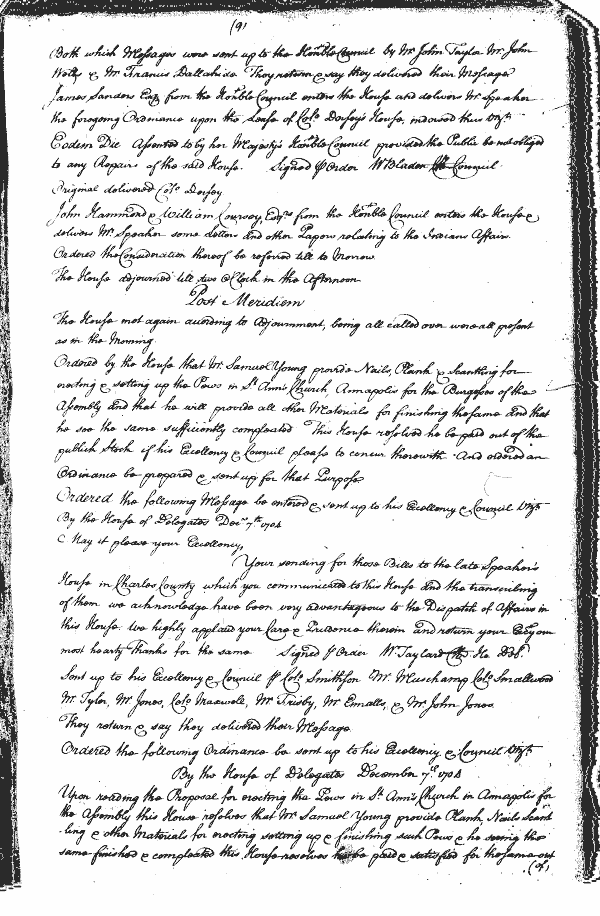 (9)
Both which Messages were sent up to the Honble Council by Mr John Taylor Mr John
Wells & Mr Francis Dallahide They return & say they delivered their Message
James Sanders Esqr from the Honble Council enters the House and delivers Mr Speaker
the foregoing Ordinance upon the Lease of Colo Dorsey's House, indorsed thus Vizt.
Eodem Die Assented to by her Majestys Honble Council provided the Public be not obliged
to any Repairs of the said House. Signed p Order W Bladen Cl Council
Original delivered Colo. Dorsey
John Hammond & William Coursey, Esqrs from the Honble Council enters the House &
delivers Mr Speaker some Letters and other Papers relating to the Indians Affairs.
Ordered the Consideration thereof be referred till to Morrow
The House adjourned till two o Clock in the Afternoon
Post Meridiem
The House met again according to Adjournment, being all called over were all present
as in the Morning.
Ordered by the House that Mr. Samuel Young provide Nails, Plank & Scantling for
erecting & setting up the Pews in St Ann's Church, Annapolis for the Burgesses of the
Assembly and that he will provide all other Materials for finishing the same and that
he see the same sufficiently compleated This House resolved he be paid out of the
publick Stock if his Excellency & Council please to concur therewith And ordered an
Ordinance be prepared & sent up for that Purpose
Ordered the following Message be entered & sent up to his Excellency & Council Vizt
By the House of Delegates Decr 7th 1704
May it please your Excellency,
Your sending for those Bills to the late Speaker's
House in Charles County which you communicated to this House and the transcribing
of them we acknowledge have been very advantageous to the Dispatch of Affairs in
this House. We highly applaud your Care & Prudence therein and return your Excy our
most hearty Thanks for the same Signed p Order W Taylard Cl Ho. Del.
Sent up to his Excellency & Council p Colo Smithson Mr. Muschamp Colo Smallwood
Mr. Tyler, Mr Jones, Colo Maxwell, Mr Frisby, Mr Ennalls, & Mr John Jones.
They return & say they delivered their Message.
Ordered the following Ordinance be sent up to his Excellency & Council Vizt
By the House of Delegates December 7th 1704
Upon reading the Proposal for erecting the Pews in St Ann's Church in Annapolis for
the Assembly this House resolves that Mr Samuel Young provide Plank, Nails Scant
ling & other Materials for erecting setting up & finishing such Pews & he seeing the
same finished & compleated this House resolves he be paid & satisfied for the same out
(of)